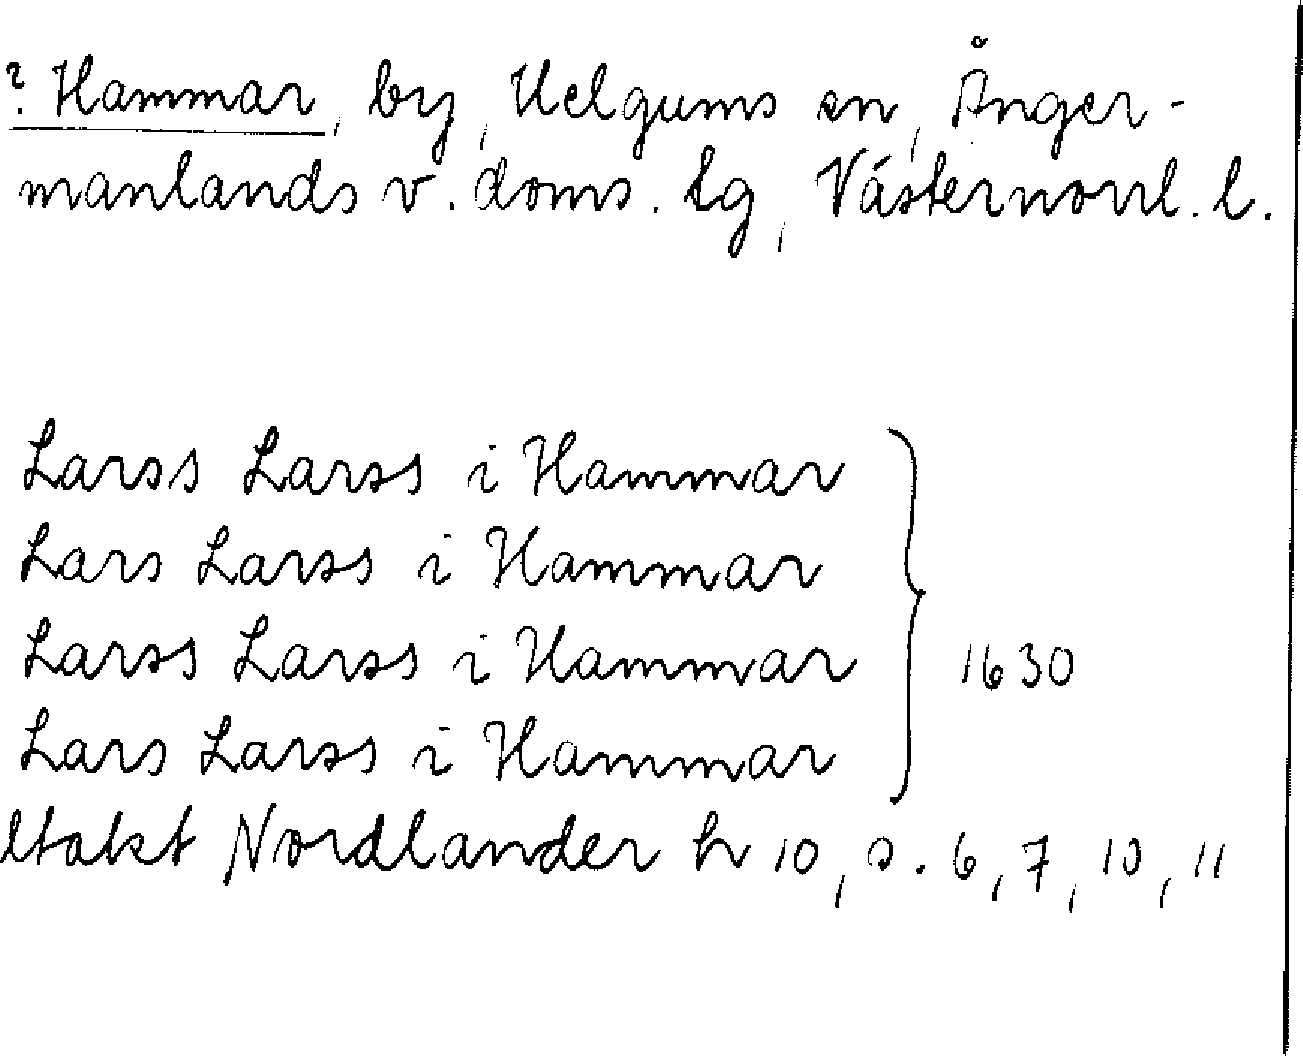 ? Hammar, by, Helgums sn, Ånger-
manlands v. doms. tg, Västernorrl. l.
Larss Larss i Hammar
Lars Larss i Hammar
Larss Larss i Hammar
1630
Lars Larss i Hammar
ltakt Nordlander h 10, s. 6, 7, 10, 11